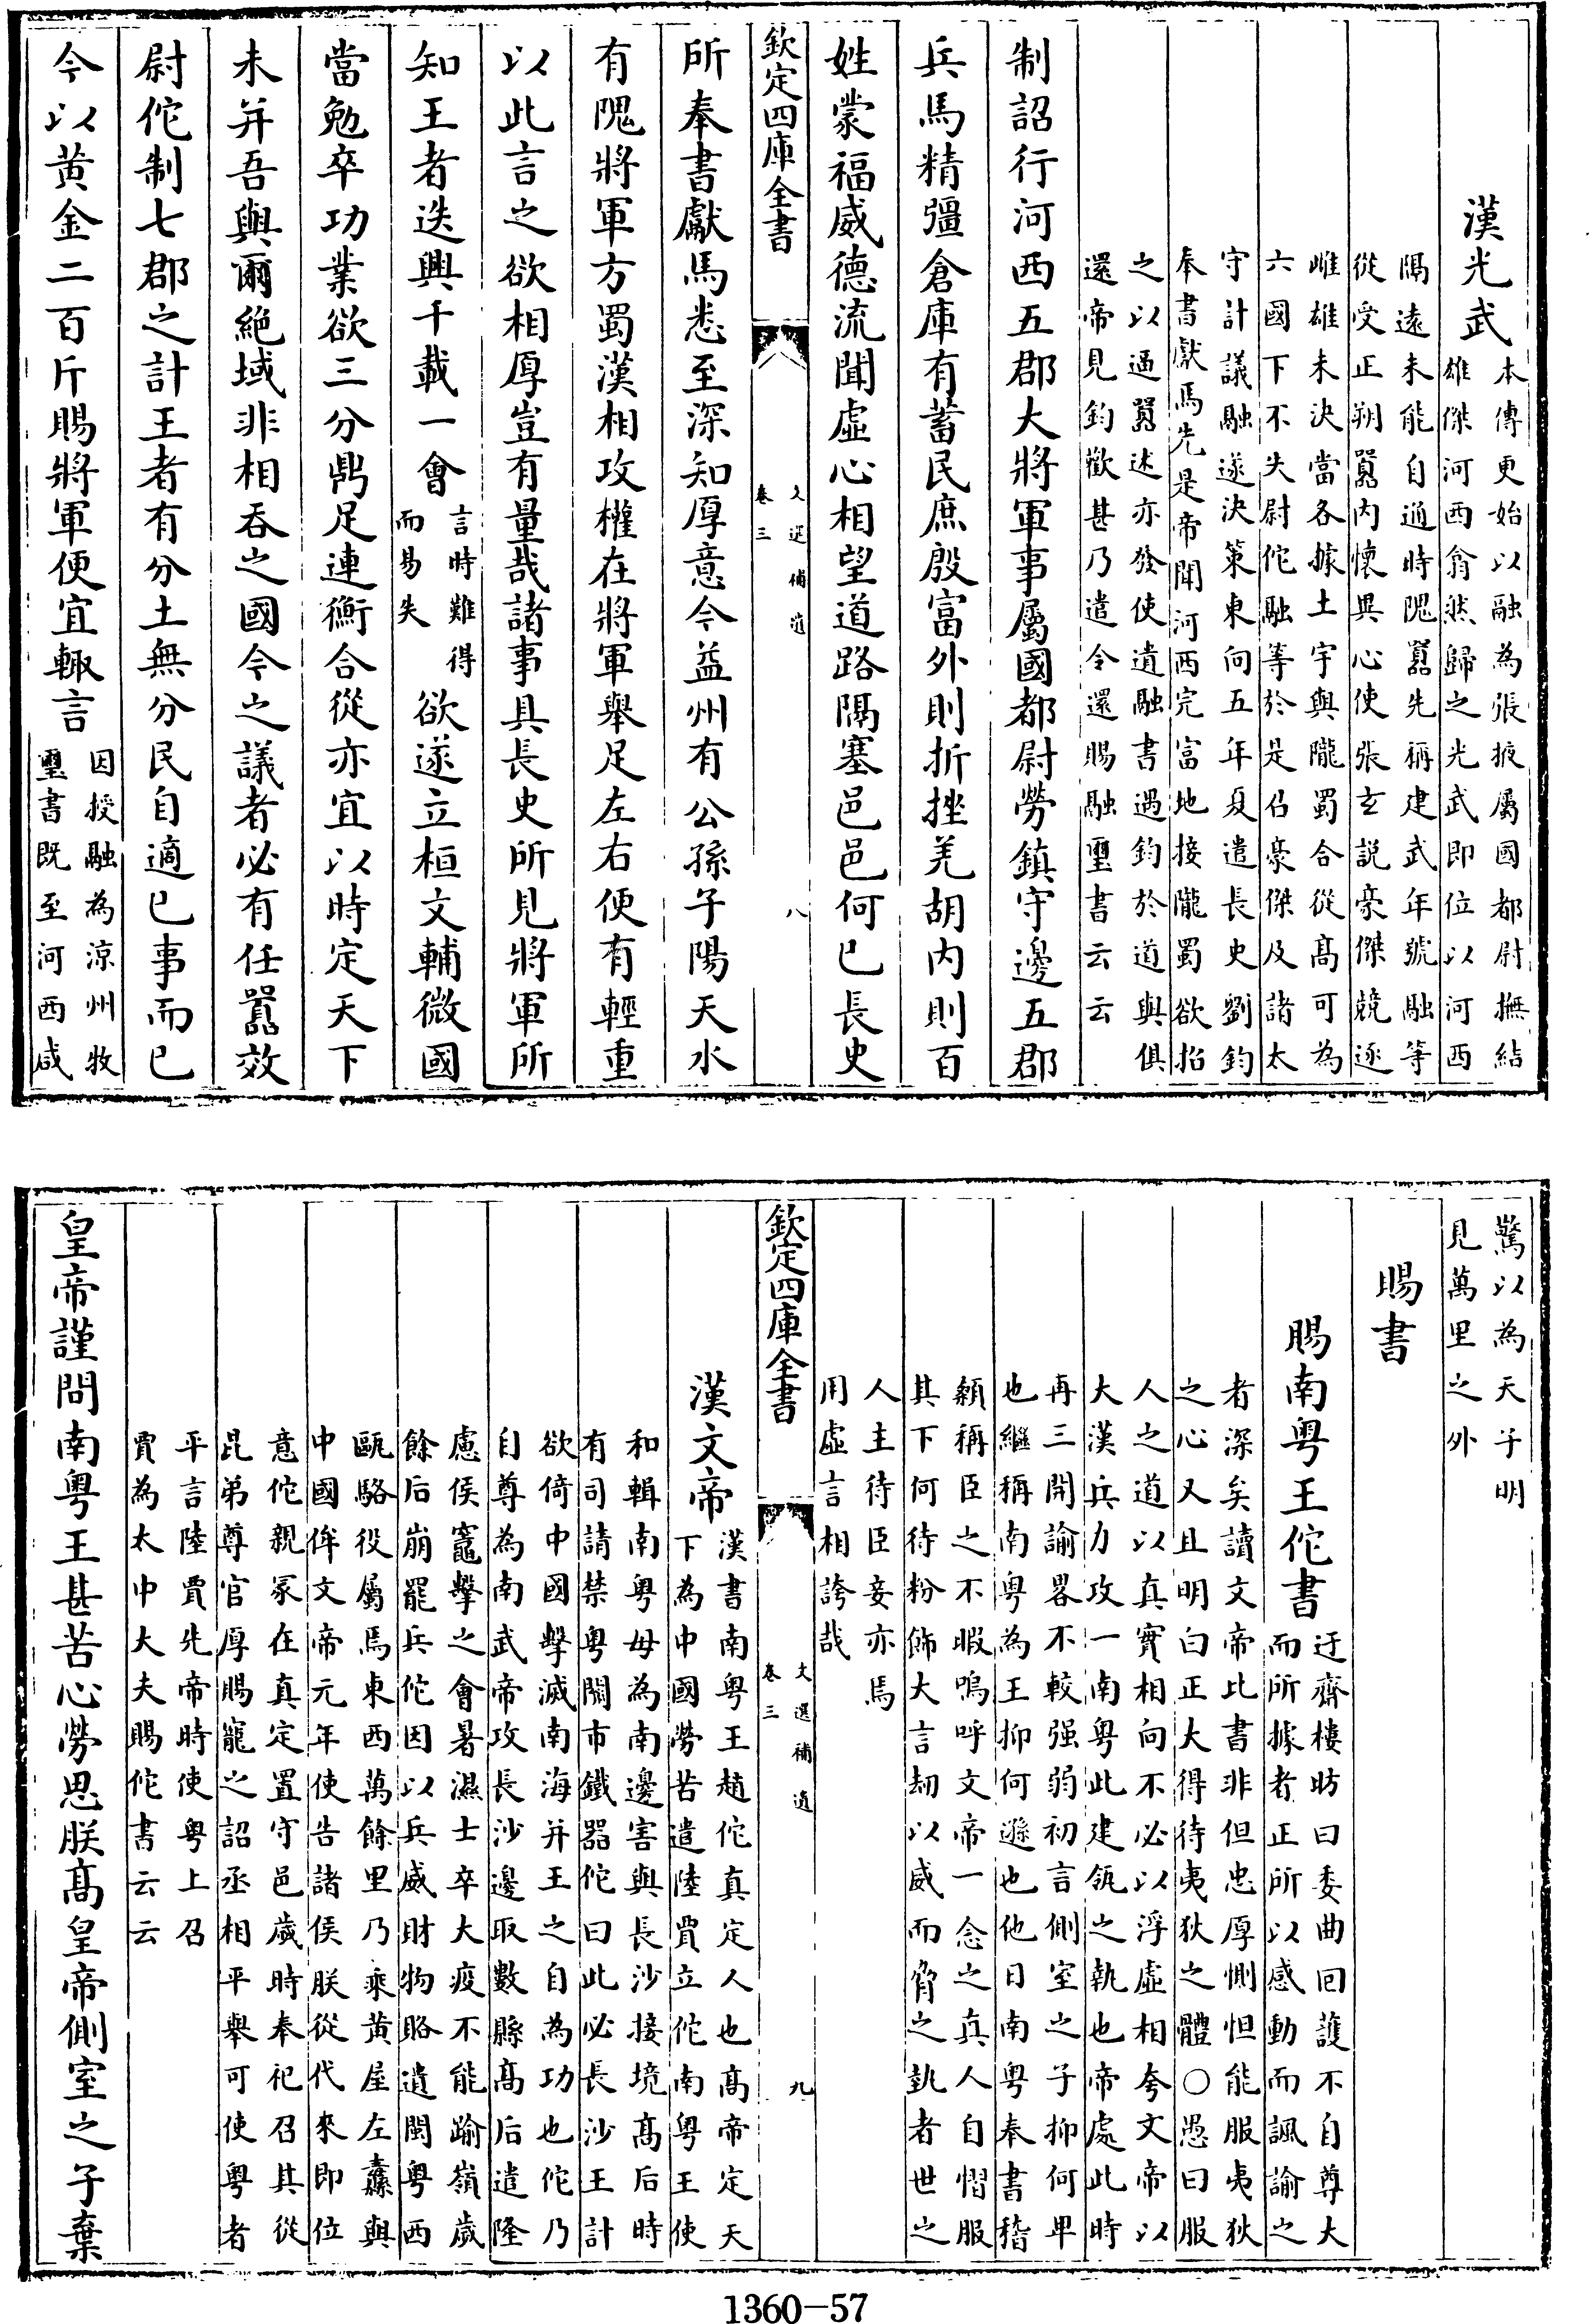 漢光武
本傳更始以融為張掖屬國都尉撫結
雄傑河西翕然歸之光武即位以河西
隔遠未能自通時隗囂先稱建武年號融等
從受正朔囂內懷異心使張玄説豪傑競逐
雌雄未決當各據土宇與隴蜀合從髙可為
六國下不失尉佗融等於是召豪傑及諸太
守計議融遂決策東向五年夏遣長史劉鈞
奉書獻馬先是帝聞河西完富地接隴蜀欲招
之以逼囂述亦發使遺融書遇鈞於道與俱
還帝見鈞歡甚乃遣令還賜融璽書云云
制詔行河西五郡大將軍事屬國都尉勞鎮守邊五郡
兵馬精彊倉庫有蓄民庶殷富外則折挫羌胡内則百
姓蒙福威德流聞虛心相望道路隔塞邑邑何已長史
欽定四庫全書
文選補遺
卷三
八
所奉書獻馬悉至深知厚意今益州有公孫子陽天水
有隗將軍方蜀漢相攻權在將軍舉足左右便有輕重
以此言之欲相厚豈有量哉諸事具長史所見將軍所
知王者迭興千載一會
言時難得
而易失
欲遂立桓文輔微國
當勉卒功業欲三分鼎足連衡合從亦宜以時定天下
未并吾與爾絶域非相吞之國今之議者必有任囂效
尉佗制七郡之計王者有分土無分民自適已事而已
今以黄金二百斤賜將軍便宜輙言
因授融為涼州牧
璽書既至河西咸
驚以為天子明
見萬里之外
賜書
賜南粤王佗書
迂齋樓昉曰委曲回護不自尊大
而所據者正所以感動而諷諭之
者深矣讀文帝此書非但忠厚惻怛能服夷狄
之心又且明白正大得待夷狄之體○愚曰服
人之道以真實相向不必以浮虛相夸文帝以
大漢兵力攻一南粤此建瓴之埶也帝處此時
再三開諭畧不較强弱初言側室之子抑何卑
也繼稱南粤為王抑何遜也他日南粤奉書稽
顙稱臣之不暇嗚呼文帝一念之真人自慴服
其下何待粉飾大言刼以威而脅之埶者世之
人主待臣妾亦焉
用虛言相誇哉
欽定四庫全書
文選補遺
卷三
九
漢文帝
漢書南粤王趙佗真定人也髙帝定天
下為中國勞苦遣陸賈立佗南粤王使
和輯南粤毋為南邊害與長沙接境髙后時
有司請禁粤關市鐵器佗曰此必長沙王計
欲倚中國擊滅南海并王之自為功也佗乃
自尊為南武帝攻長沙邊取數縣髙后遣隆
慮侯竈擊之會暑濕士卒大疫不能踰嶺歲
餘后崩罷兵佗因以兵威財物賂遺閩粤西
甌駱役屬焉東西萬餘里乃乘黄屋左纛與
中國侔文帝元年使告諸侯朕從代來即位
意佗親冢在真定置守邑歲時奉祀召其從
昆弟尊官厚賜寵之詔丞相平舉可使粤者
平言陸賈先帝時使粤上召
賈為太中大夫賜佗書云云
皇帝謹問南粤王甚苦心勞思朕髙皇帝側室之子棄
1360-57